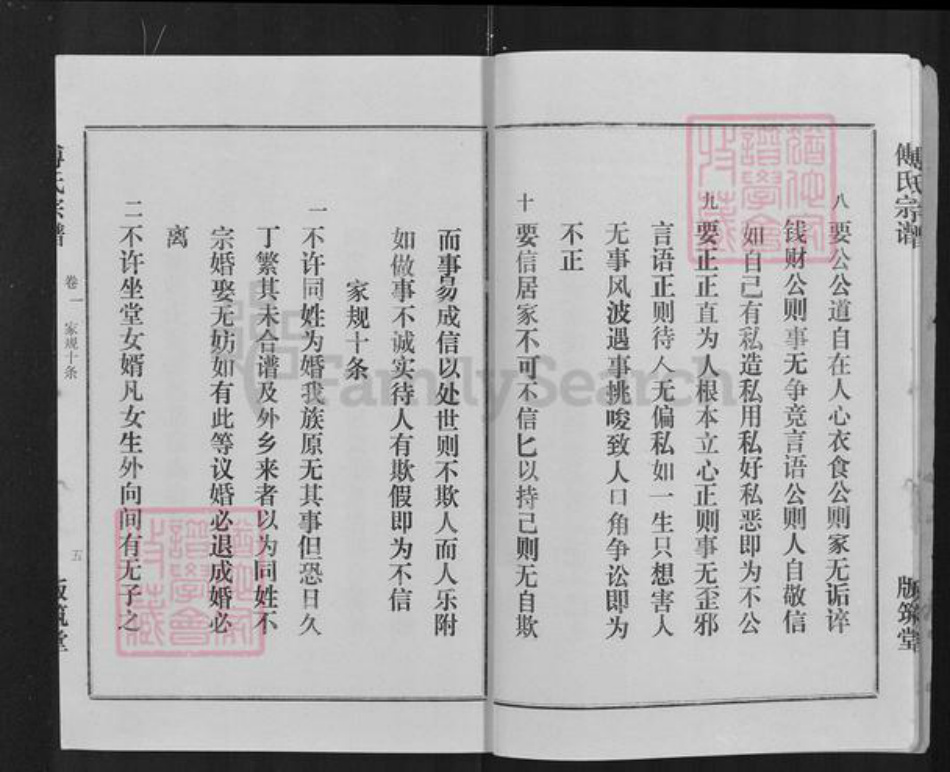 傅氏宗谱
版筑堂
八要公公道自在人心衣食公则家无诟谇
钱财公则事无争竞言语公则人自敬信
如自己有私造私用私好私恶即为不公
九要正正直为人根本立心正则事无歪邪
言语正则待人无偏私如一生只想害人
无事风波遇事挑唆致人口角争讼即为
不正
十要信居家不可不信匕以持己则无自欺
而事易成信以处世则不欺人而人乐附
如做事不诚实待人有欺假即为不信
家规十条
一不许同姓为婚我族原无其事但恐日久
丁繁其未合谱及外乡来者以为同姓不
宗婚娶无妨如有此等议婚必退成婚必
离
二不许坐堂女婿凡女生外向间有无子之
卷一 家规十条 五
FamilySearch